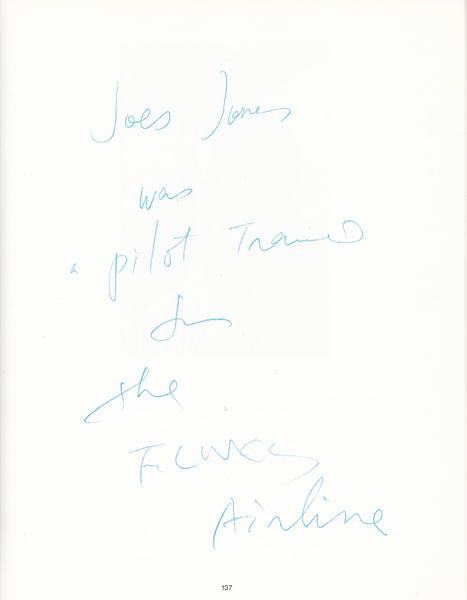 Joes Jones
was
a pilot
for
the
Fluxus
Airline
137